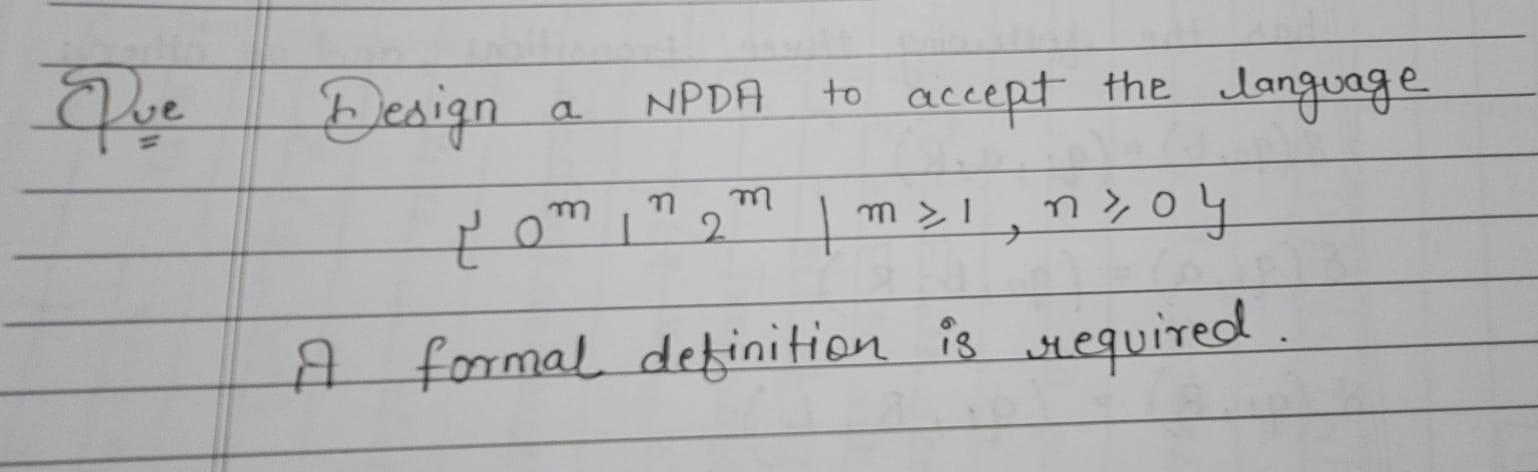 Que Design a NPDA to accept the language
{ 0^m 1^n 2^m | m ≥ 1, n ≥ 0 }
A formal definition is required.